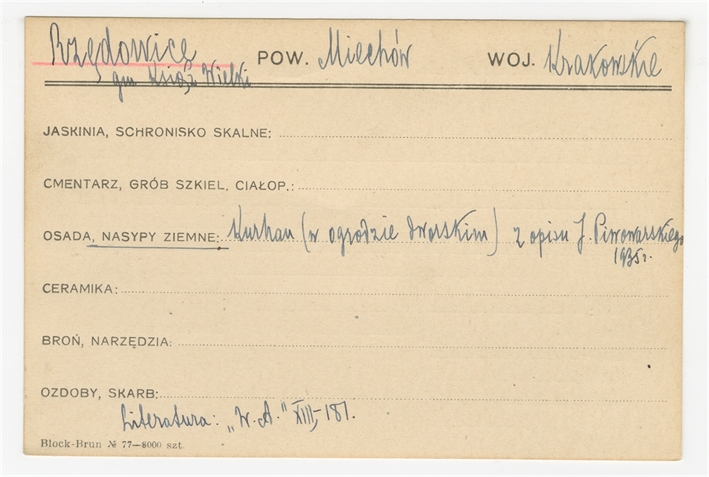 Rzędowice POW. Miechów WOJ. Krakowskie
gm Książ Wielki
JASKINIA, SCHRONISKO SKALNE:
CMENTARZ, GRÓB SZKIEL, CIAŁOP.:
OSADA, NASYPY ZIEMNE: Kurhan (w ogrodzie dworskim) z opisu J. Piwowarskiego
1935 r.
CERAMIKA:
BROŃ, NARZĘDZIA:
OZDOBY, SKARB:
Literatura: „W.A." XIII,-181.
Block-Brun № 77—8000 szt.